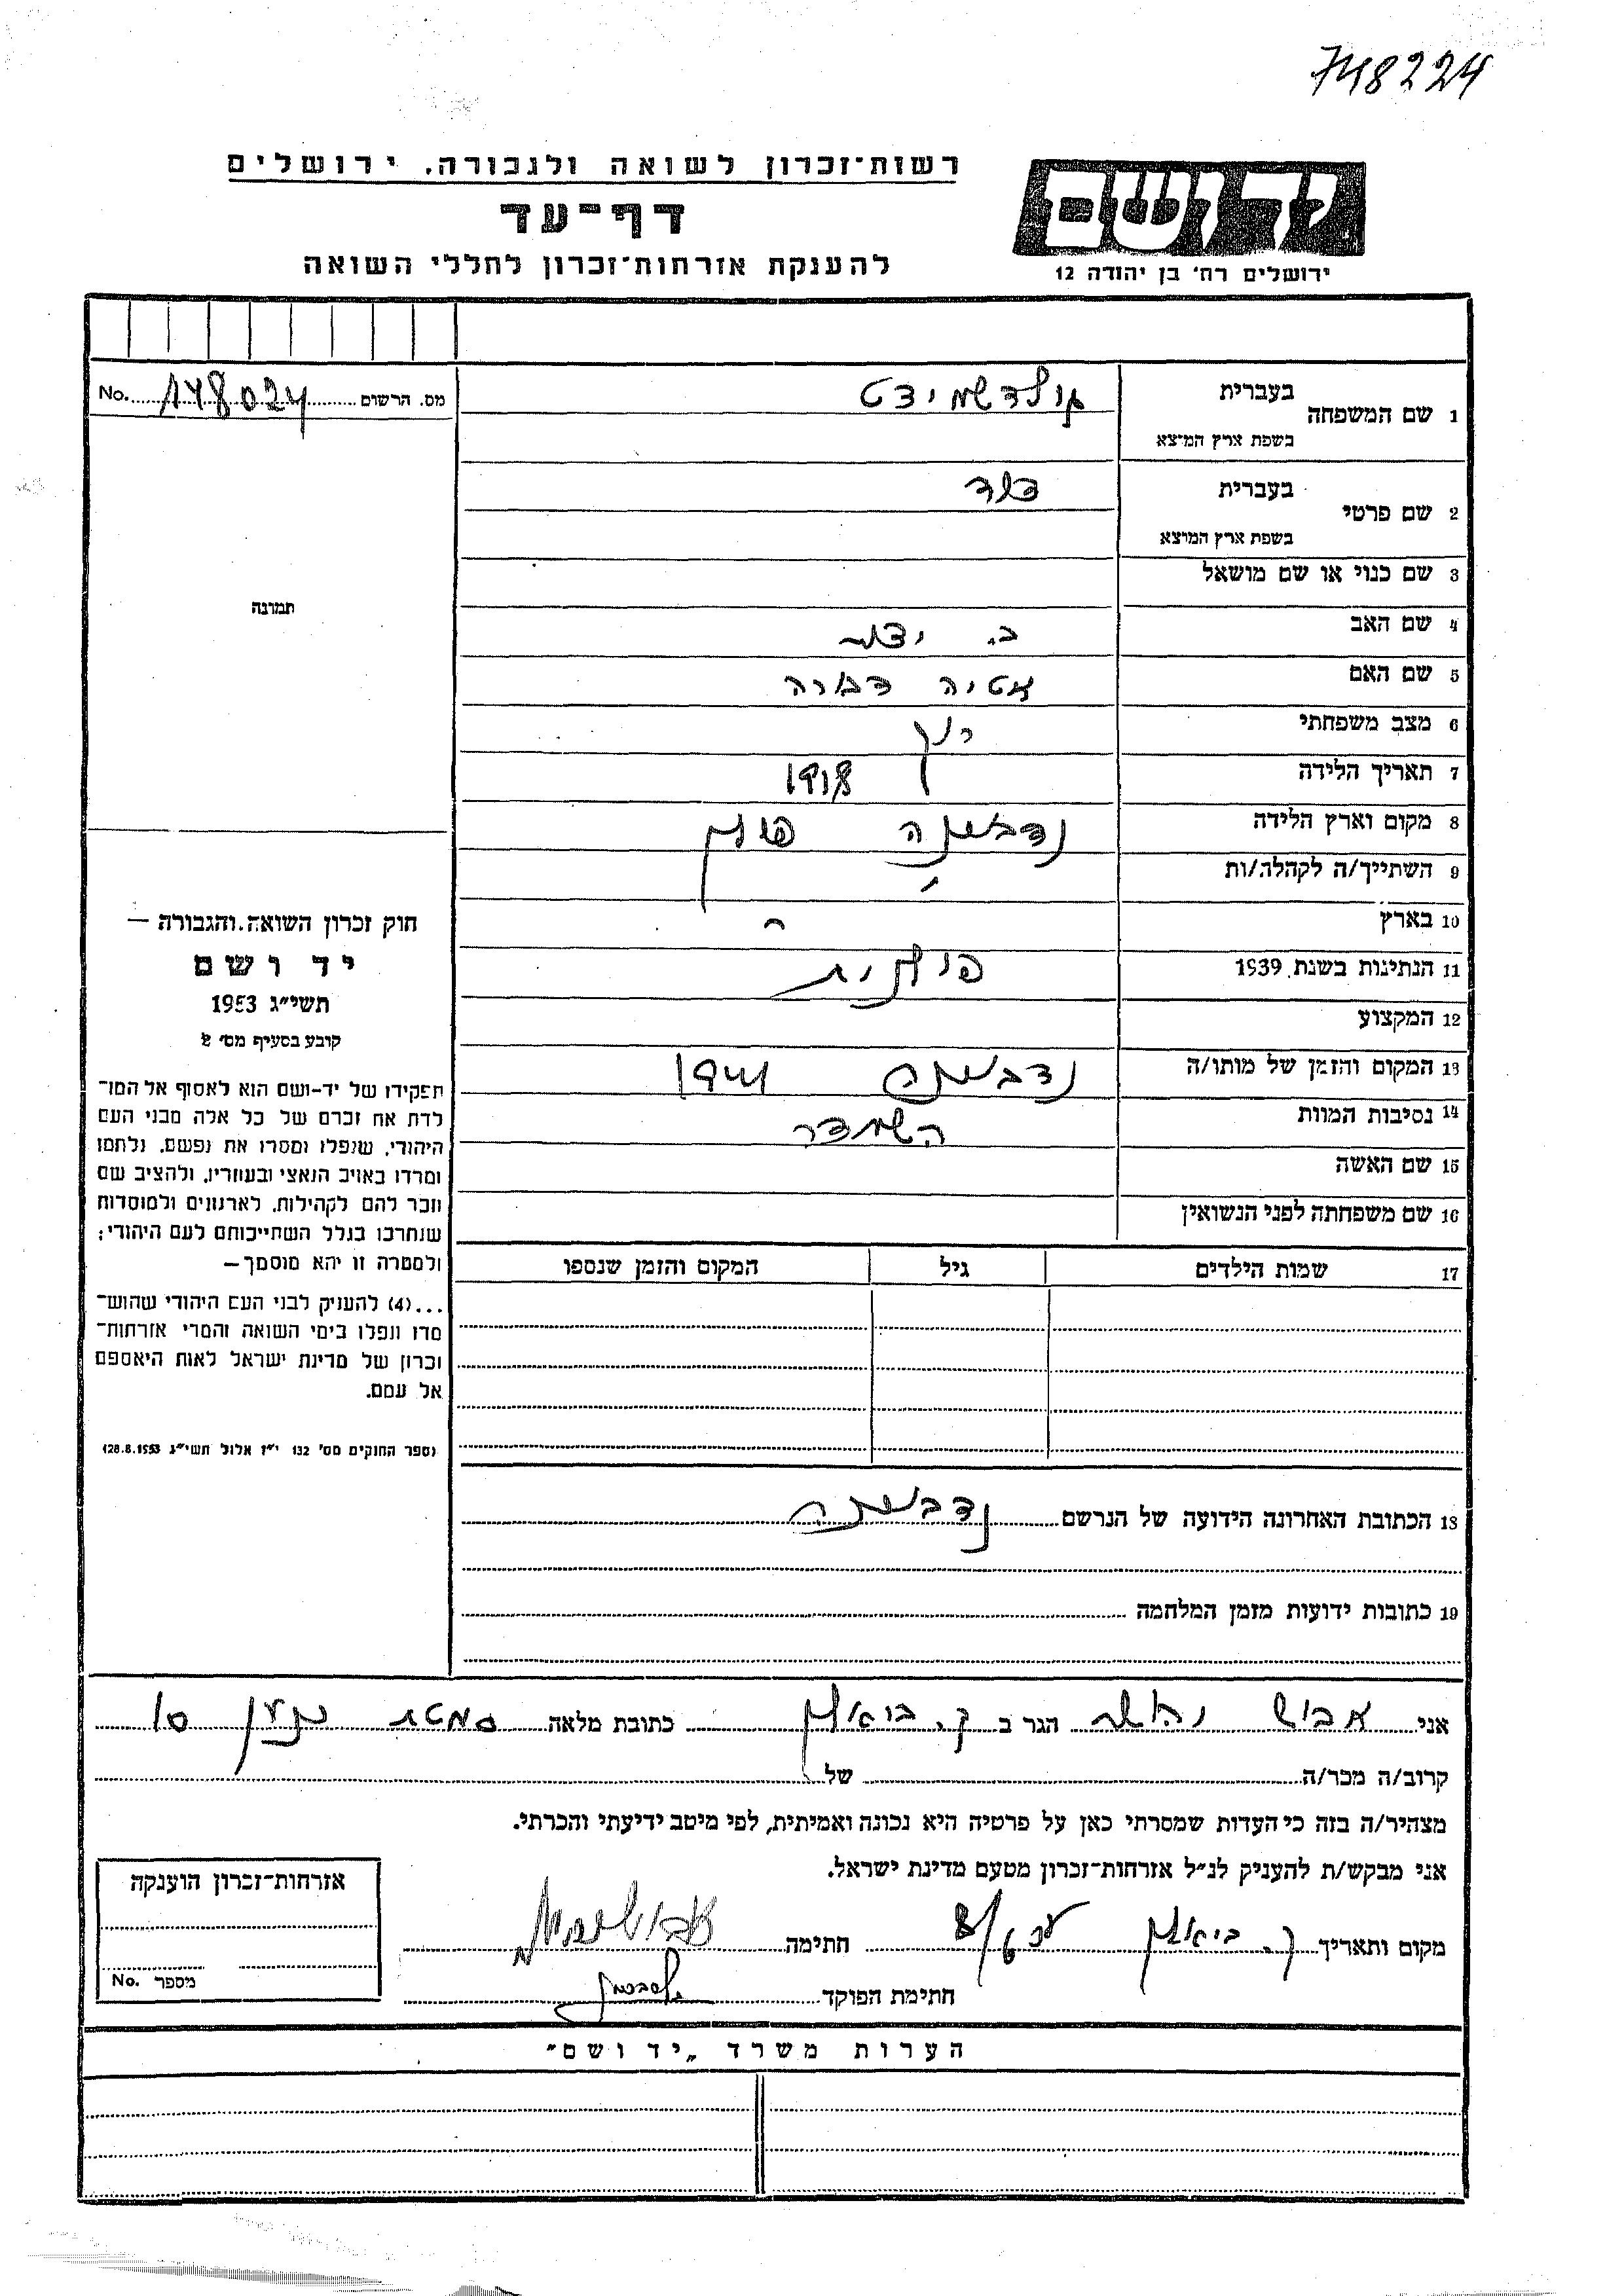 748224
רשות־זכרון לשואה ולגבורה. ירושלים
דף־עד
להענקת אזרחות־זכרון לחללי השואה
יד ושם
ירושלים רח' בן יהודה 12
מס. הרשום 148024 No.
1 שם המשפחה בעברית גולדשמידט
בשפת ארץ המוצא
2 שם פרטי בעברית דוד
בשפת ארץ המוצא
3 שם כנוי או שם מושאל
4 שם האב
5 שם האם אטיה דבורה
6 מצב משפחתי רווק
7 תאריך הלידה 1918
8 מקום וארץ הלידה נדבורנה פולין
9 השתייך/ה לקהלה/ות "
10 בארץ "
11 הנתינות בשנת 1939 פולנית
12 המקצוע
13 המקום והזמן של מותו/ה נדבורנה 1941
14 נסיבות המוות השמדה
15 שם האשה
16 שם משפחתה לפני הנשואין
17 שמות הילדים גיל המקום והזמן שנספו
תמונה
חוק זכרון השואה והגבורה —
יד ושם
תשי״ג 1953
קובע בסעיף מס׳ 2
תפקידו של יד-ושם הוא לאסוף אל המו־
לדת את זכרם של כל אלה מבני העם
היהודי, שנפלו ומסרו את נפשם, נלחמו
ומרדו באויב הנאצי ובעוזריו, ולהציב שם
וזכר להם לקהילות, לארגונים ולמוסדות
שנחרבו בגלל השתייכותם לעם היהודי;
ולמטרה זו יהא מוסמך —
...(4) להעניק לבני העם היהודי שהוש־
מדו ונפלו בימי השואה והמרי אזרחות־
זכרון של מדינת ישראל לאות היאספם
אל עמם.
(ספר החוקים מס׳ 132 י״ז אלול תשי״ג 28.8.1953)
18 הכתובת האחרונה הידועה של הנרשם נדבורנה
19 כתובות ידועות מזמן המלחמה
אני אבוש הגר ב ק. ביאליק כתובת מלאה סמטת 10
קרוב/ה מכר/ה של
מצהיר/ה בזה כי העדות שמסרתי כאן על פרטיה היא נכונה ואמיתית, לפי מיטב ידיעתי והכרתי.
אני מבקש/ת להעניק לנ״ל אזרחות־זכרון מטעם מדינת ישראל.
מקום ותאריך ק. ביאליק חתימה
חתימת הפוקד
אזרחות־זכרון הוענקה
מספר No.
הערות משרד „יד ושם״